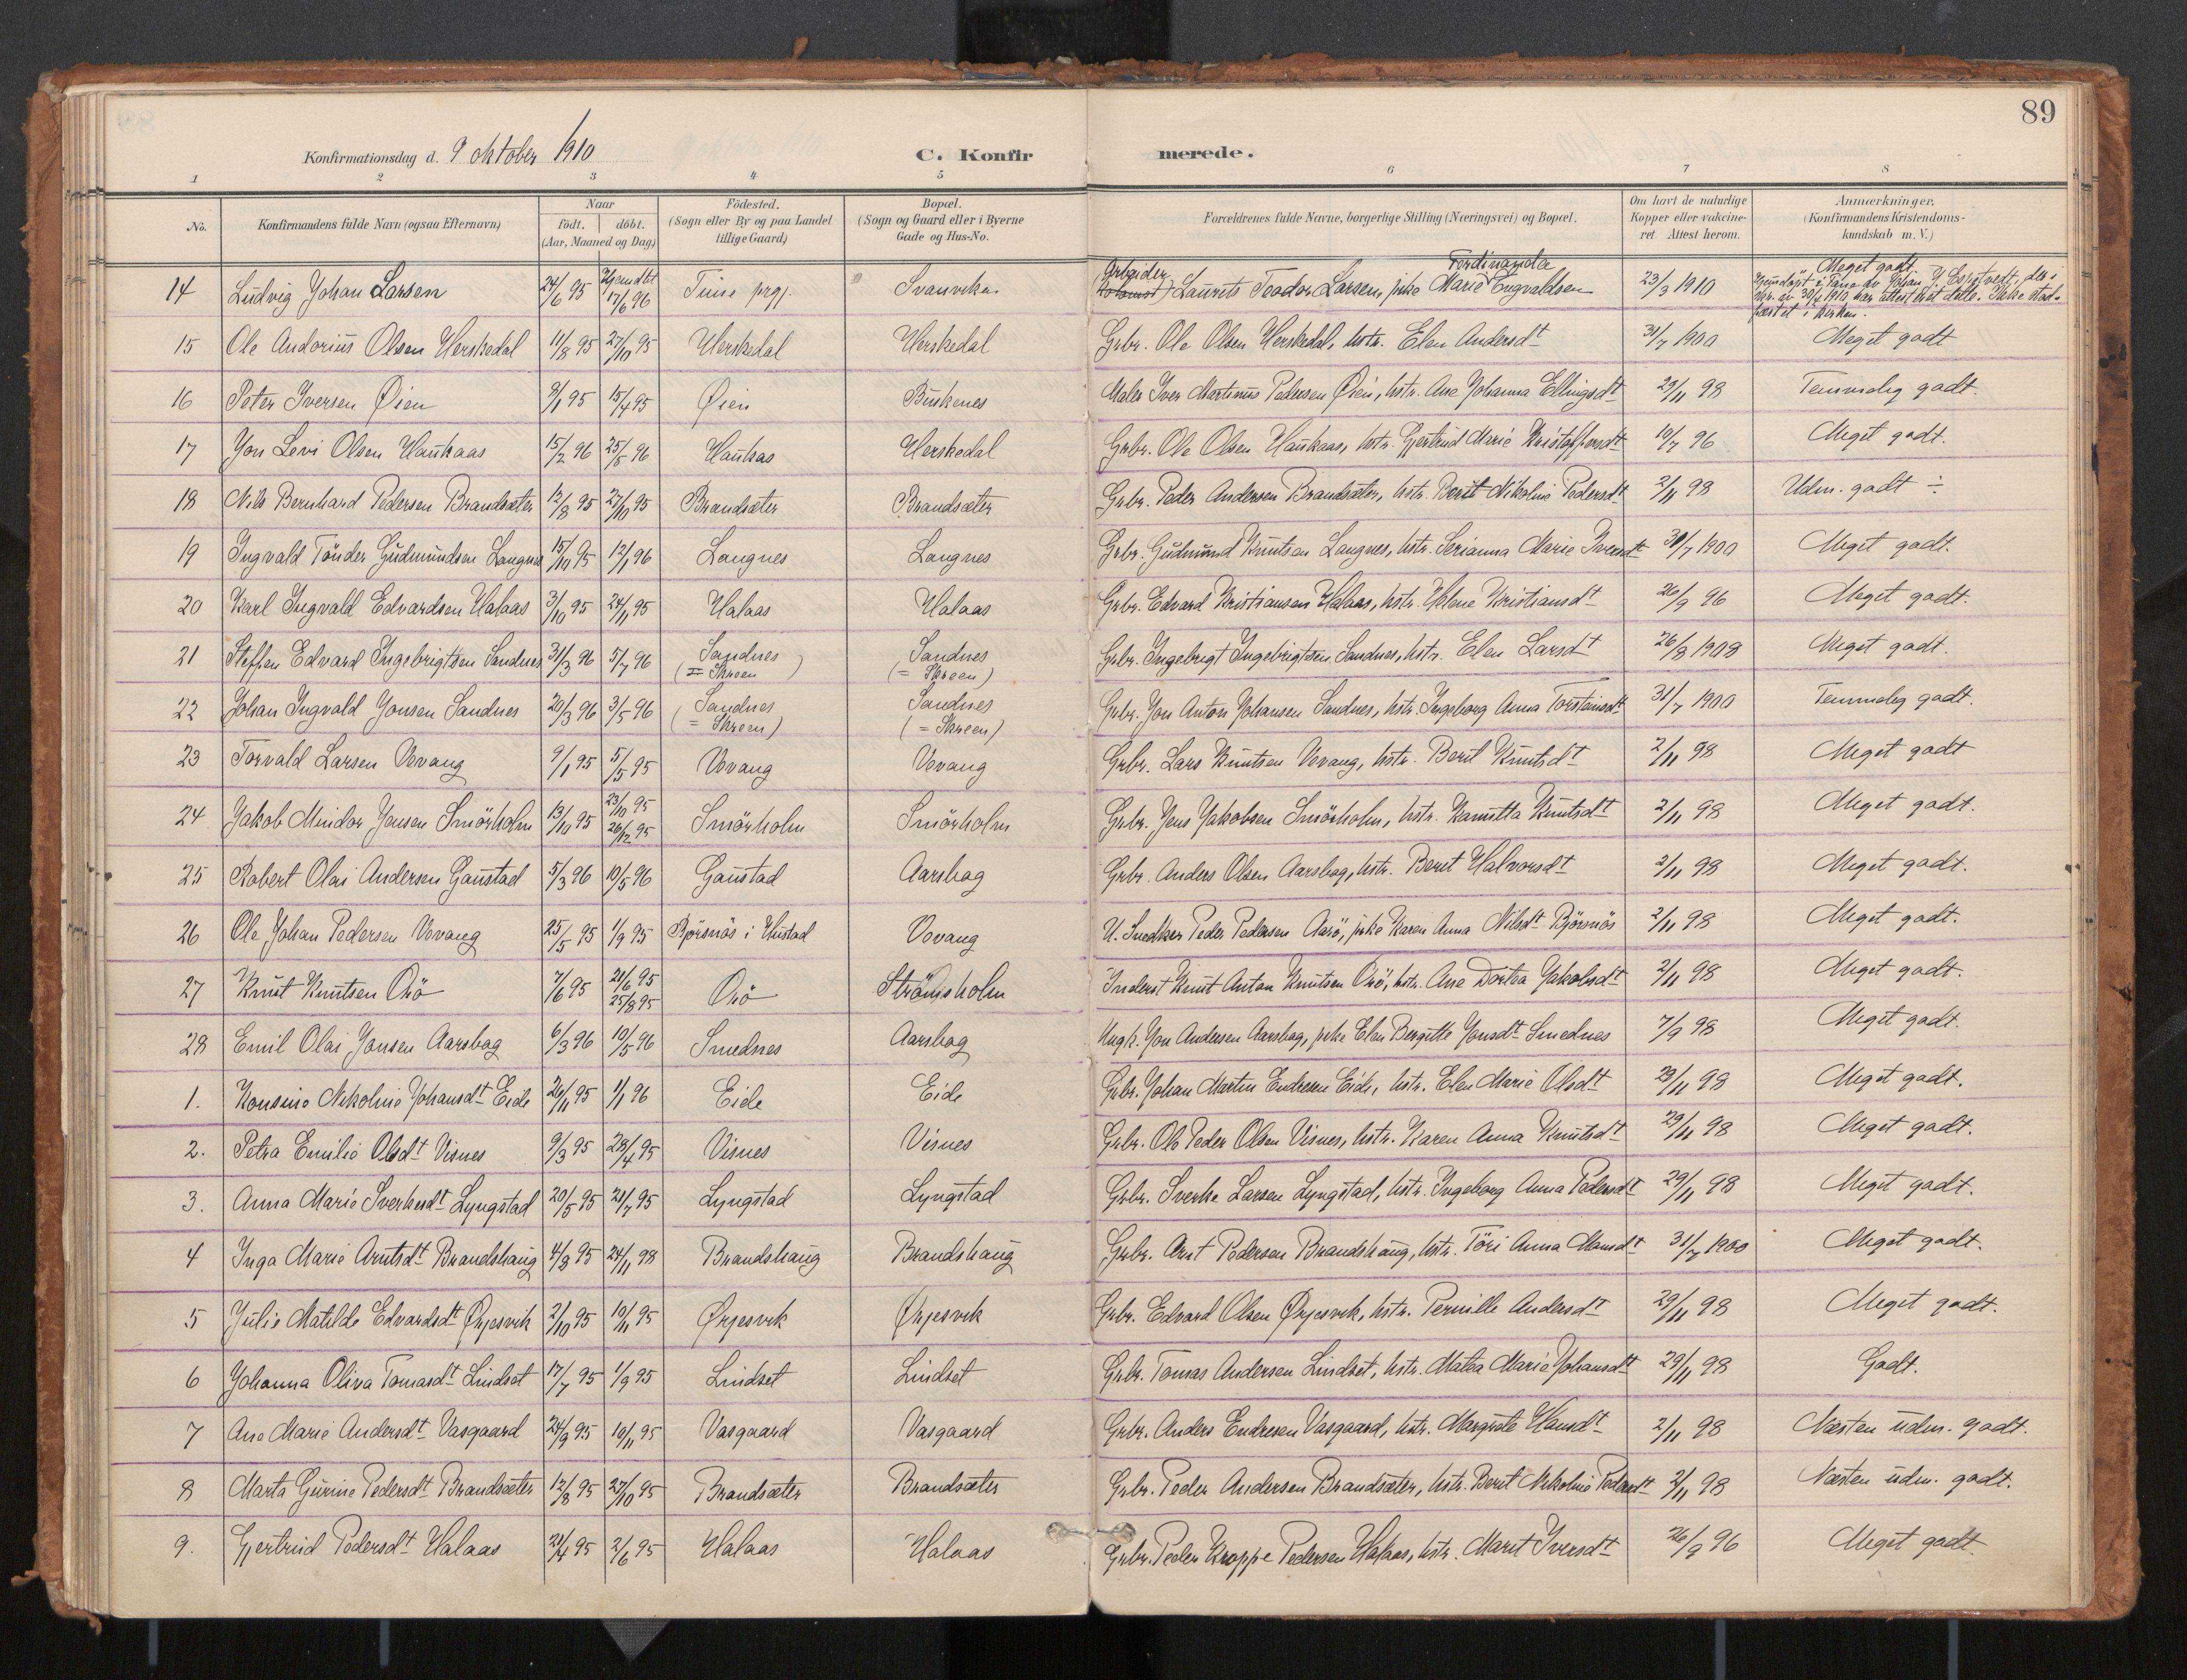 89
Konfirmationsdag d. 9 oktober 1910 C. Konfirmerede.
1 2 3 4 5 6 7 8
No. Konfirmandens fulde Navn (ogsaa Efternavn) Naar født. døbt. (Aar, Maaned og Dag) Födested. (Sogn eller By og paa Landet tillige Gaard) Bopæl. (Sogn og Gaard eller i Byerne Gade og Hus-No. Forældrenes fulde Navne, borgerlige Stilling (Næringsvei) og Bopæl. Om havt de naturlige Kopper eller vakcineret. Attest herom. Anmærkninger. (Konfirmandens Kristendomskundskab m. V.)
14 Ludvig Johan Larsen 24/6 95 Hjemdbt 17/6 96 Svanviken Arbeider Laurits Teodor Larsen, pike Marie Ferdinanda Engvaldsen 23/3 1910 Meget godt
15 Ole Andorius Olsen Herskedal 11/8 95 27/10 95 Herskedal Herskedal Grbr. Ole Olsen Herskedal, hstr. Elen Andersdt 31/7 1900 Meget godt
16 Peter Iversen Øien 9/1 95 15/4 95 Øien Buskenes Maler Iver Martinus Pedersen Øien, hstr. Ane Johanna Ellingsdt 29/11 98 Temmelig godt.
17 Jon Levi Olsen Haukaas 15/2 96 25/5 96 Haukaas Herskedal Grbr. Ole Olsen Haukaas, hstr. Gjertrud Marie Kristoffersdt 10/7 96 Meget godt.
18 Nils Bernhard Pedersen Brandsæter 12/8 95 27/10 95 Brandsæter Brandsæter Grbr. Peder Andersen Brandsæter, hstr. Berit Nikoline Pedersdt 2/11 98 Udm. godt ÷
19 Ingvald Tönder Gudmundsen Langnes 15/10 95 12/1 96 Langnes Langnes Grbr. Gudmund Knutsen Langnes, hstr. Serianna Marie Iversdt 31/7 1900 Meget godt.
20 Karl Ingvald Edvardsen Halaas 3/10 95 24/11 95 Halaas Halaas Grbr. Edvard Kristiansen Halaas, hstr. Helene Kristiansdt 26/9 96 Meget godt.
21 Steffen Edvard Ingebrigtsen Sandnes 31/3 96 5/7 96 Sandnes (= Skreen) Sandnes (= Skreen) Grbr. Ingebrigt Ingebrigtsen Sandnes, hstr. Elen Larsdt 26/8 1908 Meget godt.
22 Johan Ingvald Jonsen Sandnes 20/3 96 3/5 96 Sandnes (= Skreen) Sandnes (= Skreen) Grbr. Jon Anton Johansen Sandnes, hstr. Ingeborg Anna Torsteinsdt 31/7 1900 Temmelig godt.
23 Torvald Larsen Vevang 9/1 95 5/5 95 Vevang Vevang Grbr. Lars Knutsen Vevang, hstr. Beril Knutsdt 2/11 98 Meget godt
24 Jakob Mindor Jensen Smörholm 13/10 95 23/10 95 26/12 95 Smörholm Smörholm Grbr. Jens Jakobsen Smörholm, hstr. Kanutta Knutsdt 2/11 98 Meget godt.
25 Robert Olai Andersen Gaustad 5/3 96 10/5 96 Gaustad Aarsbog Grbr. Anders Olsen Aarsbog, hstr. Beret Halvorsdt 2/11 98 Meget godt.
26 Ole Johan Pedersen Vevang 25/5 95 1/9 95 Björsnös i Hustad Vevang U. Snedker Peder Pedersen Aarö, pike Karen Anna Nilsdt Björsnös 2/11 98 Meget godt.
27 Knut Knutsen Orö 7/6 95 21/6 95 25/8 95 Orö Strömsholm Inderst Knut Anton Knutsen Orö, hstr. Ane Dortea Jakobsdt 2/11 98 Meget godt.
28 Emil Olai Jonsen Aarsbog 6/3 96 10/5 96 Smednes Aarsbog Ungk. Jon Andersen Aarsbog, pike Elen Bergitte Jonsdt Smednes 7/9 98 Meget godt.
1. Konsine Nikoline Johansdt Eide 26/11 95 1/1 96 Eide Eide Grbr. Johan Martin Endresen Eide, hstr. Elen Marie Olsdt 29/11 98 Meget godt.
2. Petra Emilie Olsdt Visnes 9/3 95 28/4 95 Visnes Visnes Grbr. Ole Peder Olsen Visnes, hstr. Karen Anna Knutsdt 29/11 98 Meget godt.
3. Anna Marie Sverkesdt Lyngstad 20/5 95 21/7 95 Lyngstad Lyngstad Grbr. Sverke Larsen Lyngstad, hstr. Ingeborg Anna Pedersdt 29/11 98 Meget godt.
4 Inga Marie Arntsdt Brandshaug 4/8 95 24/11 98 Brandshaug Brandshaug Grbr. Arnt Pedersen Brandshaug, hstr. Töri Anna Hansdt 31/7 1900 Meget godt.
5 Julie Matilde Edvardsdt Ørjesvik 2/10 95 10/11 95 Ørjesvik Ørjesvik Grbr. Edvard Olsen Ørjesvik, hstr. Pernille Andersdt 29/11 98 Meget godt.
6 Johanna Oliva Tomasdt Lindset 17/7 95 1/9 95 Lindset Lindset Grbr. Tomas Andersen Lindset, hstr. Matea Marie Johansdt 29/11 98 Godt.
7 Ane Marie Andersdt Vasgaard 24/9 95 10/11 95 Vasgaard Vasgaard Grbr. Anders Endresen Vasgaard, hstr. Margrete Hansdt 2/11 98 Næsten udm. godt.
8 Marta Gurine Pedersdt Brandsæter 12/8 95 27/10 95 Brandsæter Brandsæter Grbr. Peder Andersen Brandsæter, hstr. Berit Nikoline Pedersdt 2/11 98 Næsten udm. godt.
9. Gjertrud Pedersdt Halaas 21/4 95 2/6 95 Halaas Halaas Grbr. Peder Kroppe Pedersen Halaas, hstr. Marit Iversdt 26/9 96 Meget godt.